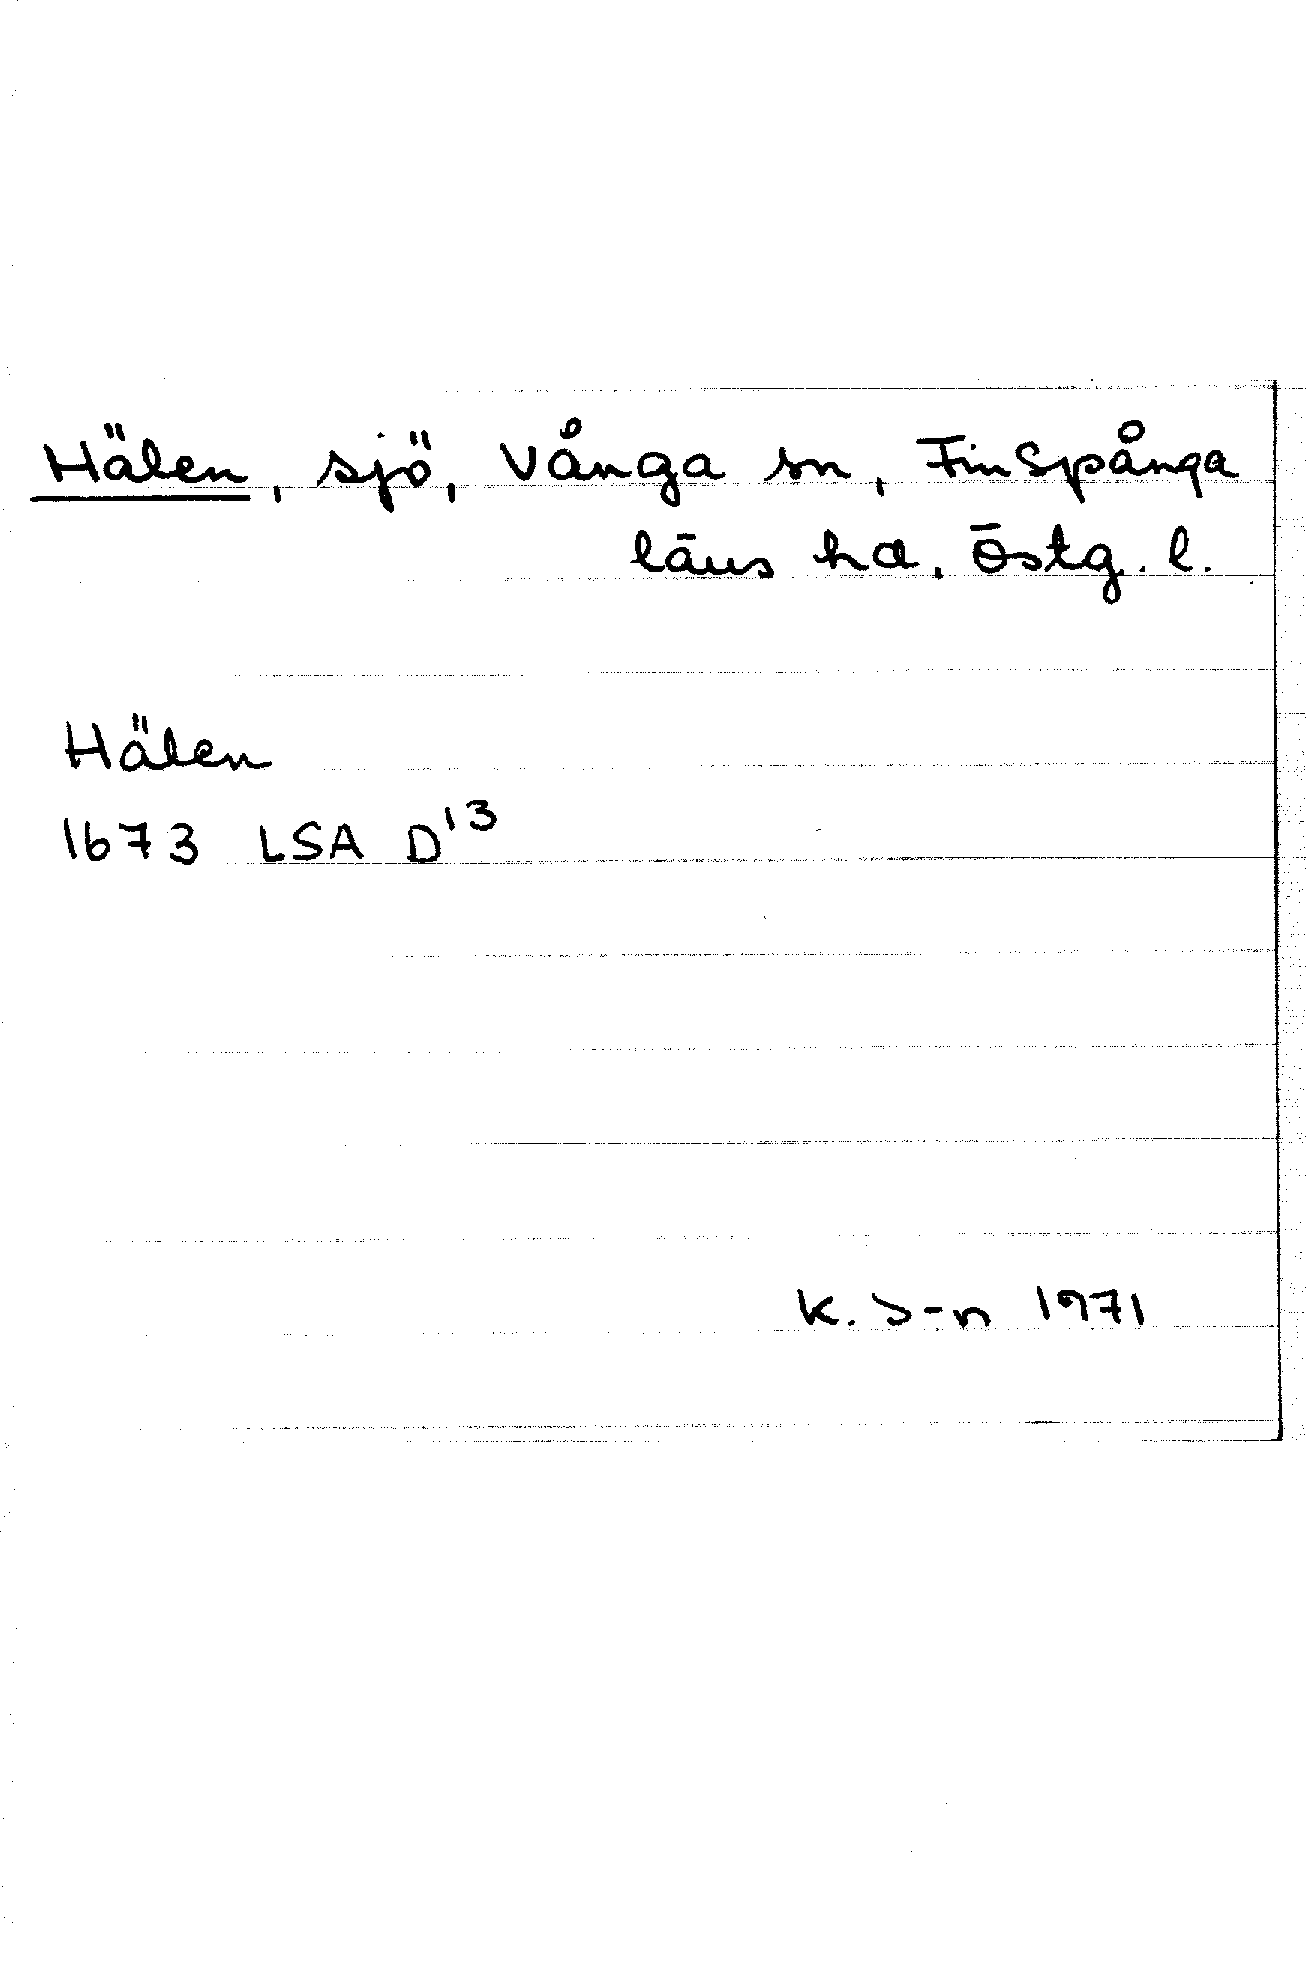 Hälen, sjö, Vånga sn, Finspånga
läns hd, Östg. l.
Hälen
1673 LSA D¹³
K. S-n 1971